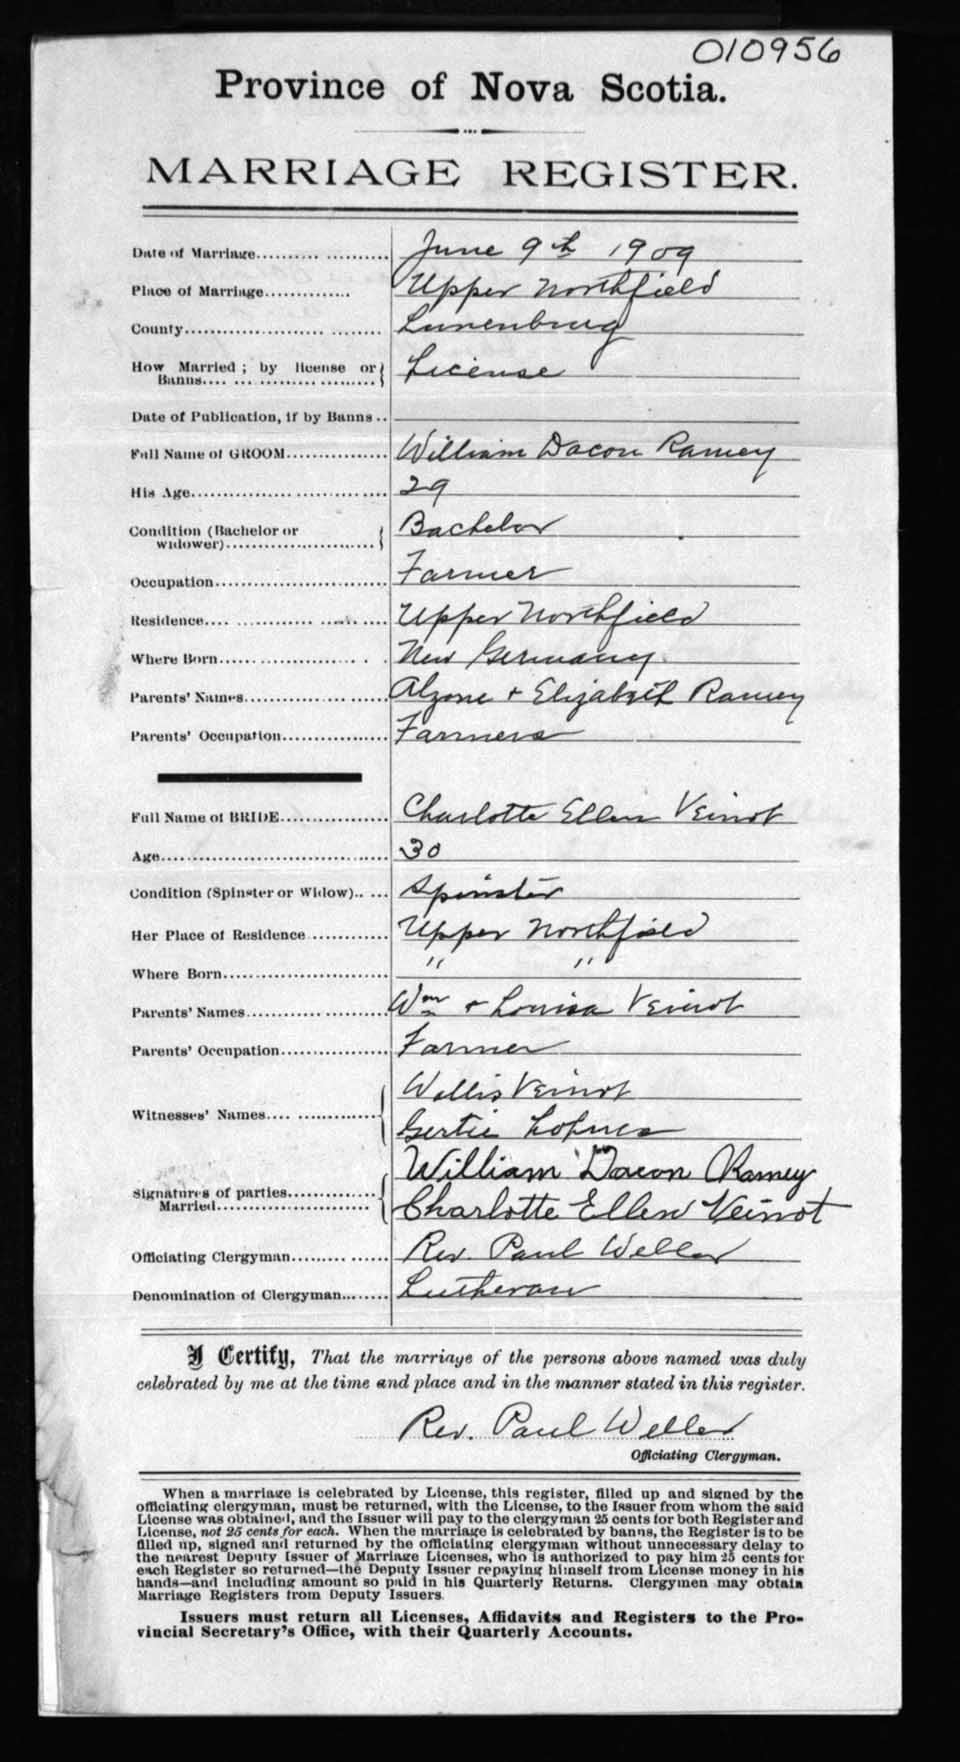 010956
Province of Nova Scotia.
MARRIAGE REGISTER.
Date of Marriage.......... ........... June 9th 1909
Place of Marriage.............. Upper Northfield
County........................ ........ Lunenburg
How Married ; by license or License
Banns.... ... ................ ..........
Date of Publication, if by Banns ..
Full Name of GROOM................. William Dacon Ramey
His Age...................... ............. 29
Condition (Bachelor or Bachelor
widower)..............................
Occupation............................. Farmer
Residence.... ............. ........ .... Upper Northfield
Where Born...... ................. . . New Germany
Parents' Names......................... Alzone + Elizabeth Ramey
Parents' Occupation................. Farmers
Full Name of BRIDE................. Charlotte Ellen Veinot
Age...................................... 30
Condition (Spinster or Widow).. ... Spinster
Her Place of Residence ............ Upper Northfield
Where Born........................... " "
Parents' Names........................ Wm + Louisa Veinot
Parents' Occupation................. Farmer
Willis Veinot
Witnesses' Names.... ..............
Gertie Lohnes
William Dacon Ramey
Signatures of parties..............
Married......................... Charlotte Ellen Veinot
Officiating Clergyman......... ...... Rev. Paul Weller
Denomination of Clergyman........ Lutheran
I Certify, That the marriage of the persons above named was duly
celebrated by me at the time and place and in the manner stated in this register.
Rev. Paul Weller
Officiating Clergyman.
When a marriage is celebrated by License, this register, filled up and signed by the
officiating clergyman, must be returned, with the License, to the Issuer from whom the said
License was obtained, and the Issuer will pay to the clergyman 25 cents for both Register and
License, not 25 cents for each. When the marriage is celebrated by banns, the Register is to be
filled up, signed and returned by the officiating clergyman without unnecessary delay to
the nearest Deputy Issuer of Marriage Licenses, who is authorized to pay him 25 cents for
each Register so returned—the Deputy Issuer repaying himself from License money in his
hands—and including amount so paid in his Quarterly Returns. Clergymen may obtain
Marriage Registers from Deputy Issuers.
Issuers must return all Licenses, Affidavits and Registers to the Pro-
vincial Secretary's Office, with their Quarterly Accounts.